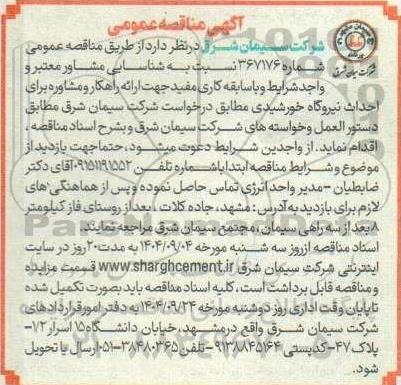 آگهی مناقصه عمومی
شرکت سیمان شرق در نظر دارد از طریق مناقصه عمومی
شماره ۳۶۷۱۷۶ نسبت به شناسایی مشاور معتبر و
واجد شرایط و با سابقه کاری مفید جهت ارائه راهکار و مشاوره برای
شرکت سیمان شرق
احداث نیروگاه خورشیدی مطابق درخواست شرکت سیمان شرق مطابق
دستور العمل و خواسته های شرکت سیمان شرق و بشرح اسناد مناقصه ،
اقدام نماید. از واجدین شرایط دعوت میشود ، حتما جهت بازدید از
موضوع و شرایط مناقصه ابتدا با شماره تلفن ۰۹۱۵۱۱۹۱۵۵۲ آقای دکتر
ضابطیان -مدیر واحد انرژی تماس حاصل نموده و پس از هماهنگی های
لازم برای بازدید به آدرس : مشهد ، جاده کلات ، بعد از روستای فاز کیلومتر
۸ بعد از سه راهی سیمان ، مجتمع سیمان شرق مراجعه نمایند.
اسناد مناقصه از روز سه شنبه مورخه ۱۴۰۴/۰۹/۰۴ به مدت ۲۰ روز در سایت
اینترنتی شرکت سیمان شرق www.sharghcement.ir قسمت مزایده
و مناقصه قابل برداشت است ، کلیه اسناد مناقصه باید بصورت تکمیل شده
تا پایان وقت اداری روز دوشنبه مورخه ۱۴۰۴/۰۹/۲۴ به دفتر امور قراردادهای
شرکت سیمان شرق واقع در مشهد ، خیابان دانشگاه ۱۵ اسرار ۷۲-
پلاک ۴۷- کدپستی ۹۱۳۸۸۴۵۱۶۴ -تلفن ۳۸۴۸۰۳۶۵-۰۵۱ ارسال یا تحویل
شود.